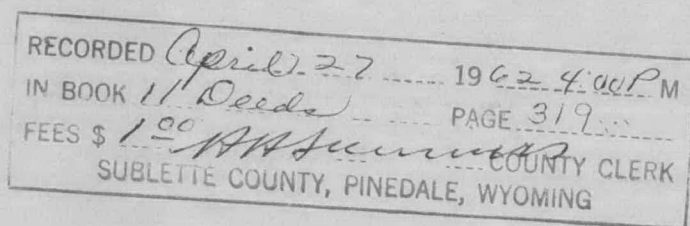 RECORDED April 27 1962 4:00 P M
IN BOOK 11 Deeds PAGE 319
FEES $ 1 00 COUNTY CLERK
SUBLETTE COUNTY, PINEDALE, WYOMING